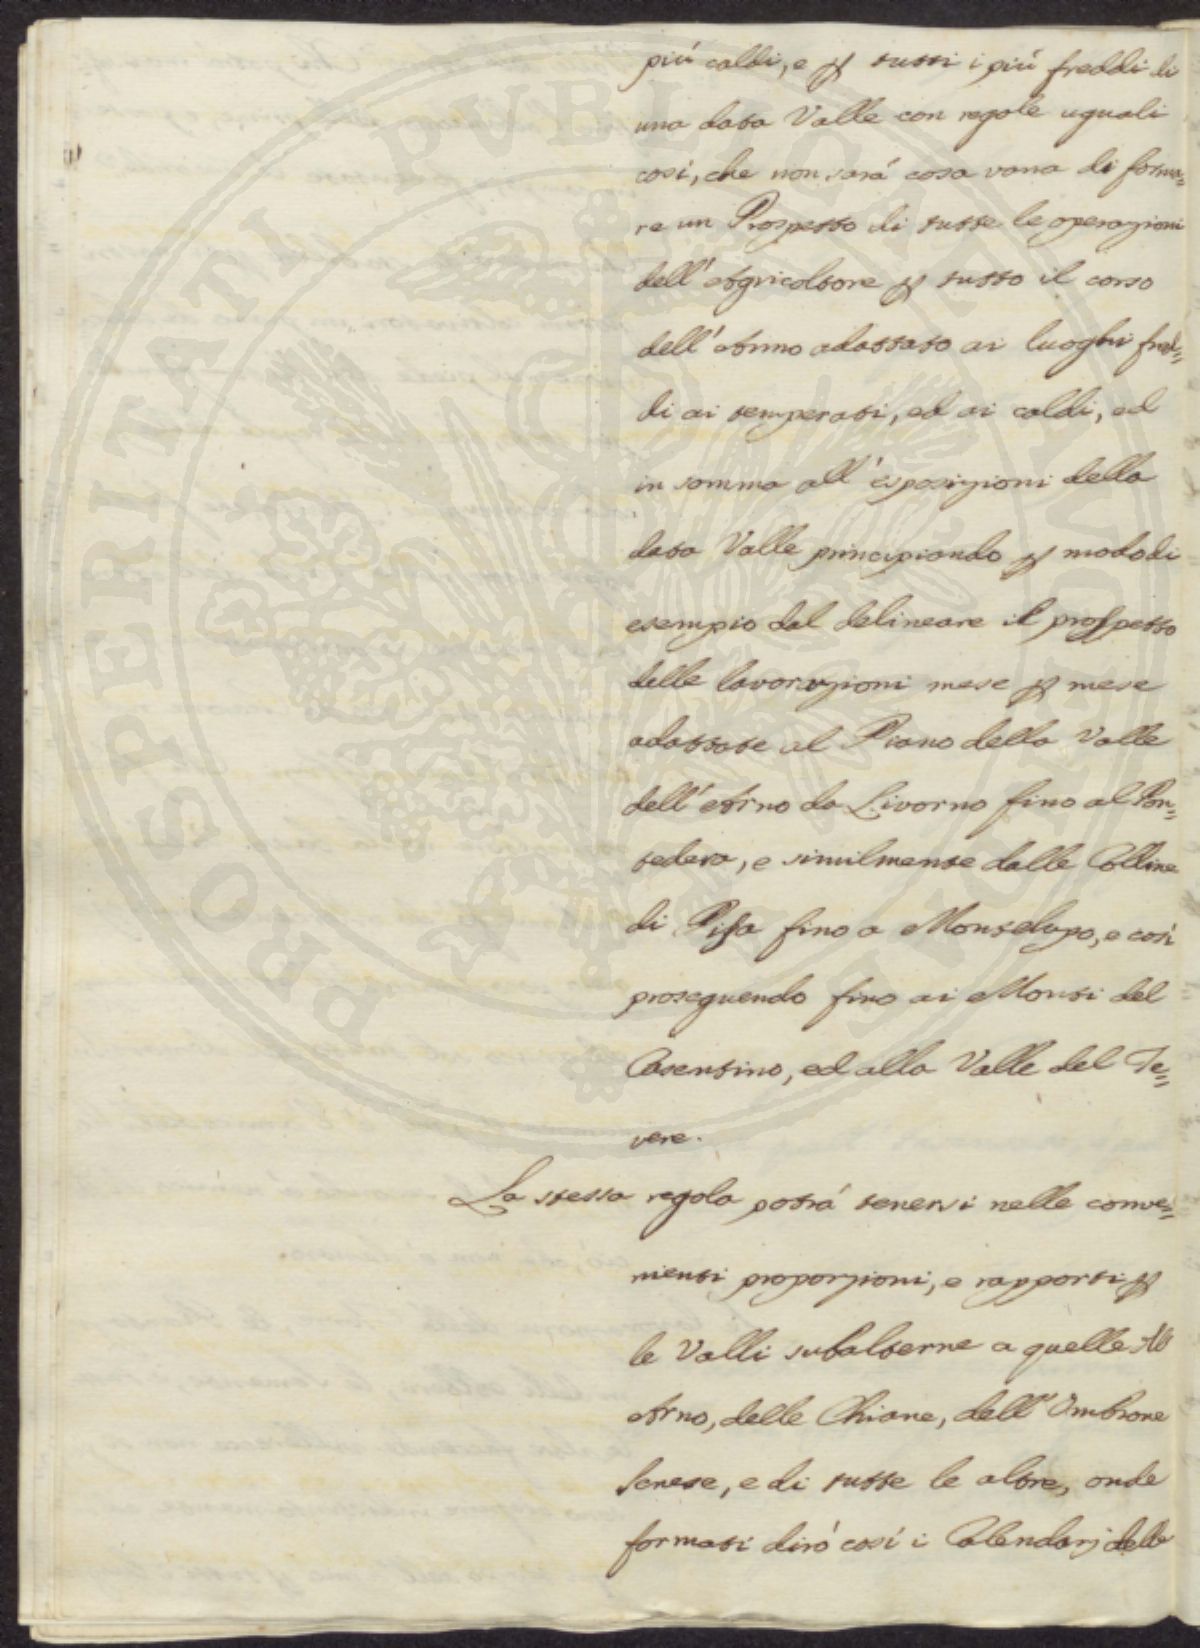 piú caldi, e ꝑ tutti i piú freddi di
una data Valle con regole uguali
cosí, che non sará cosa vana di forma=
re un Prospetto di tutte le operazioni
dell'Agricoltore ꝑ tutto il corso
dell'Anno adattato ai luoghi fred=
di ai temperati, ed ai caldi, ed
in somma all'esposizioni della
data Valle principiando ꝑ modo di
esempio dal delineare il prospetto
delle lavorazioni mese ꝑ mese
adattate al Piano della Valle
dell'Arno da Livorno fino al Pon=
tedera, e similmente dalle Colline
di Pisa fino a Montelupo, e cosí
proseguendo fino ai Monti del
Casentino, ed alla Valle del Te=
vere.
La stessa regola potrá tenersi nelle conve=
nienti proporzioni, e rapporti ꝑ
le Valli subalterne a quelle dell
Arno, delle Chiane, dell'Ombrone
Senese, e di tutte le altre, onde
formati diró cosí i Calendarj delle
PROSPERITATI PUBLICAE AUGENDAE